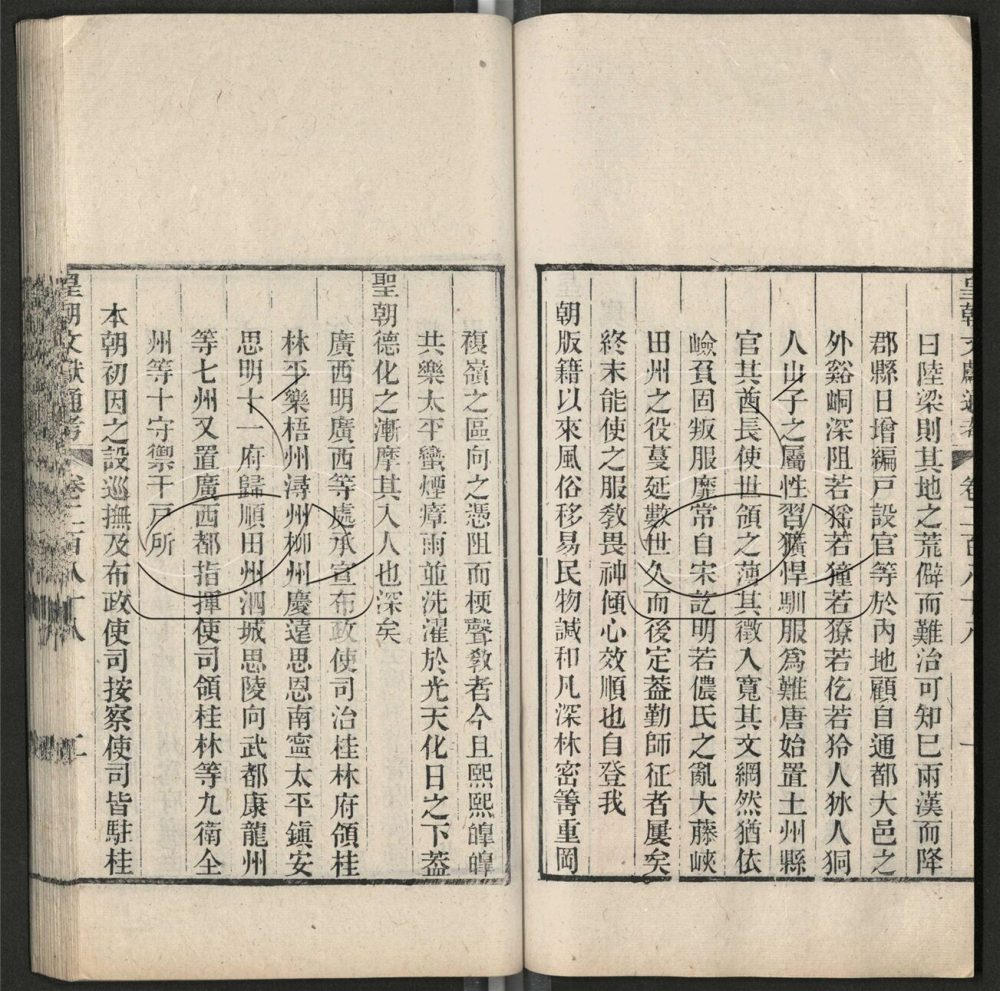 皇朝文獻通考 卷二百八十八 一
曰陸梁則其地之荒僻而難治可知巳兩漢而降
郡縣日增編戸設官等於內地顧自通都大邑之
外谿峒深阻若猺若獞若獠若仡若狑人㺍人狪
人山子之屬性習獷悍馴服爲難唐始置土州縣
官其酋長使世領之薄其徵入寬其文網然猶依
嶮負固叛服靡常自宋訖明若儂氏之亂大藤峽
田州之役蔓延數世久而後定葢勤師征者屢矣
終未能使之服敎畏神傾心效順也自登我
朝版籍以來風俗移易民物諴和凡深林密箐重岡
複嶺之區向之憑阻而梗聲敎者今且熙熙皥皥
共樂太平蠻煙瘴雨並洗濯於光天化日之下葢
聖朝德化之漸摩其入人也深矣
廣西明廣西等處承宣布政使司治桂林府領桂
林平樂梧州潯州柳州慶遠思恩南寧太平鎭安
思明十一府歸順田州泗城思陵向武都康龍州
等七州又置廣西都指揮使司領桂林等九衛全
州等十守禦千戸所
本朝初因之設巡撫及布政使司按察使司皆駐桂
皇朝文獻通考 卷二百八十八